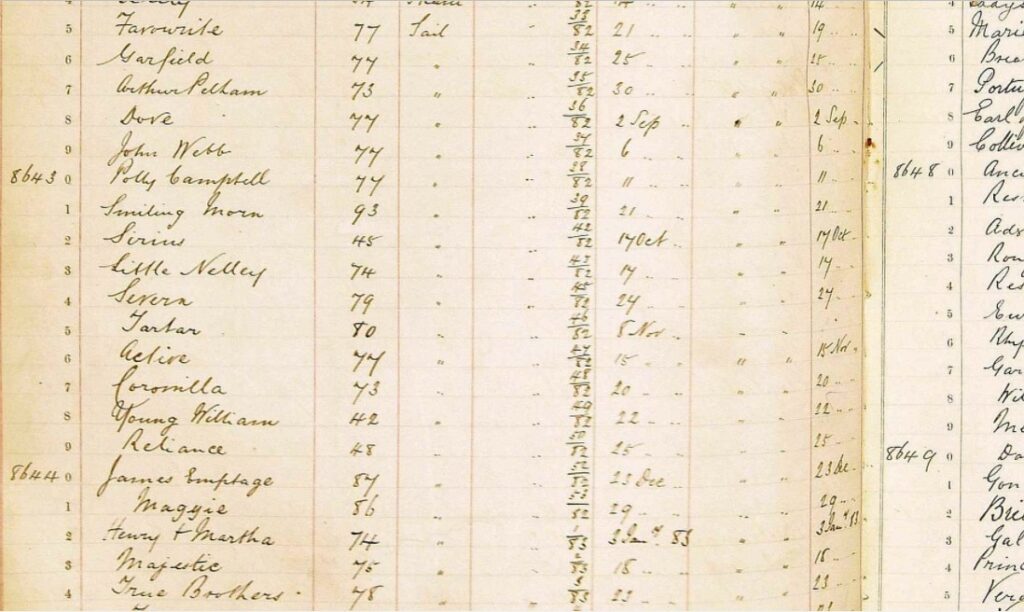 5 Favourite 77 Sail " 33/82 21 " " " " 19 " "
6 Garfield 77 " " 34/82 25 " " " "
7 Arthur Pelham 73 " " 35/82 30 " " " " 30 " "
8 Dove 77 " " 36/82 2 Sep " " " 2 Sep "
9 John Webb 77 " " 37/82 6 " " " " 6 " "
8643 0 Polly Campbell 77 " " 38/82 11 " " " " 11 " "
1 Smiling Morn 93 " " 39/82 21 " " " " 21 " "
2 Sirius 45 " " 42/82 17 Oct " " " 17 Oct "
3 Little Nelley 74 " " 43/82 17 " " " " 17 " "
4 Severn 79 " " 45/82 24 " " " " 24 " "
5 Tartar 80 " " 46/82 8 Nov " " "
6 Active 77 " " 47/82 15 " " " " 15 Nov "
7 Coronilla 73 " " 48/82 20 " " " " 20 " "
8 Young William 42 " " 49/82 22 " " " " 22 " "
9 Reliance 48 " " 50/82 25 " " " " 25 " "
8644 0 James Emptage 87 " " 52/82 23 Dec " " " 23 Dec "
1 Maggie 86 " " 53/82 29 " " " " 29 " "
2 Henry & Martha 74 " " 1/83 3 Jany 83 " " 3 Jany 83
3 Majestic 75 " " 83 18 " " " " 18 " "
4 True Brothers 78 " " 83 23 " " " " 23 " "
5
6
7
8 Earl
9
8648 0
1
2
3
4
5
6
7
8
9
8649 0
1
2
3
4
5